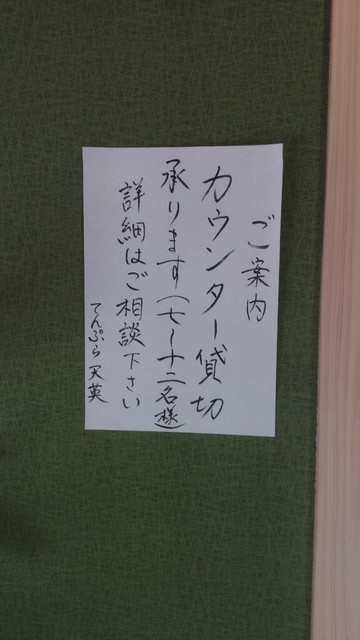 ご案内
カウンター貸切
承ります(七ー十二名様)
詳細はご相談下さい
てんぷら 天英